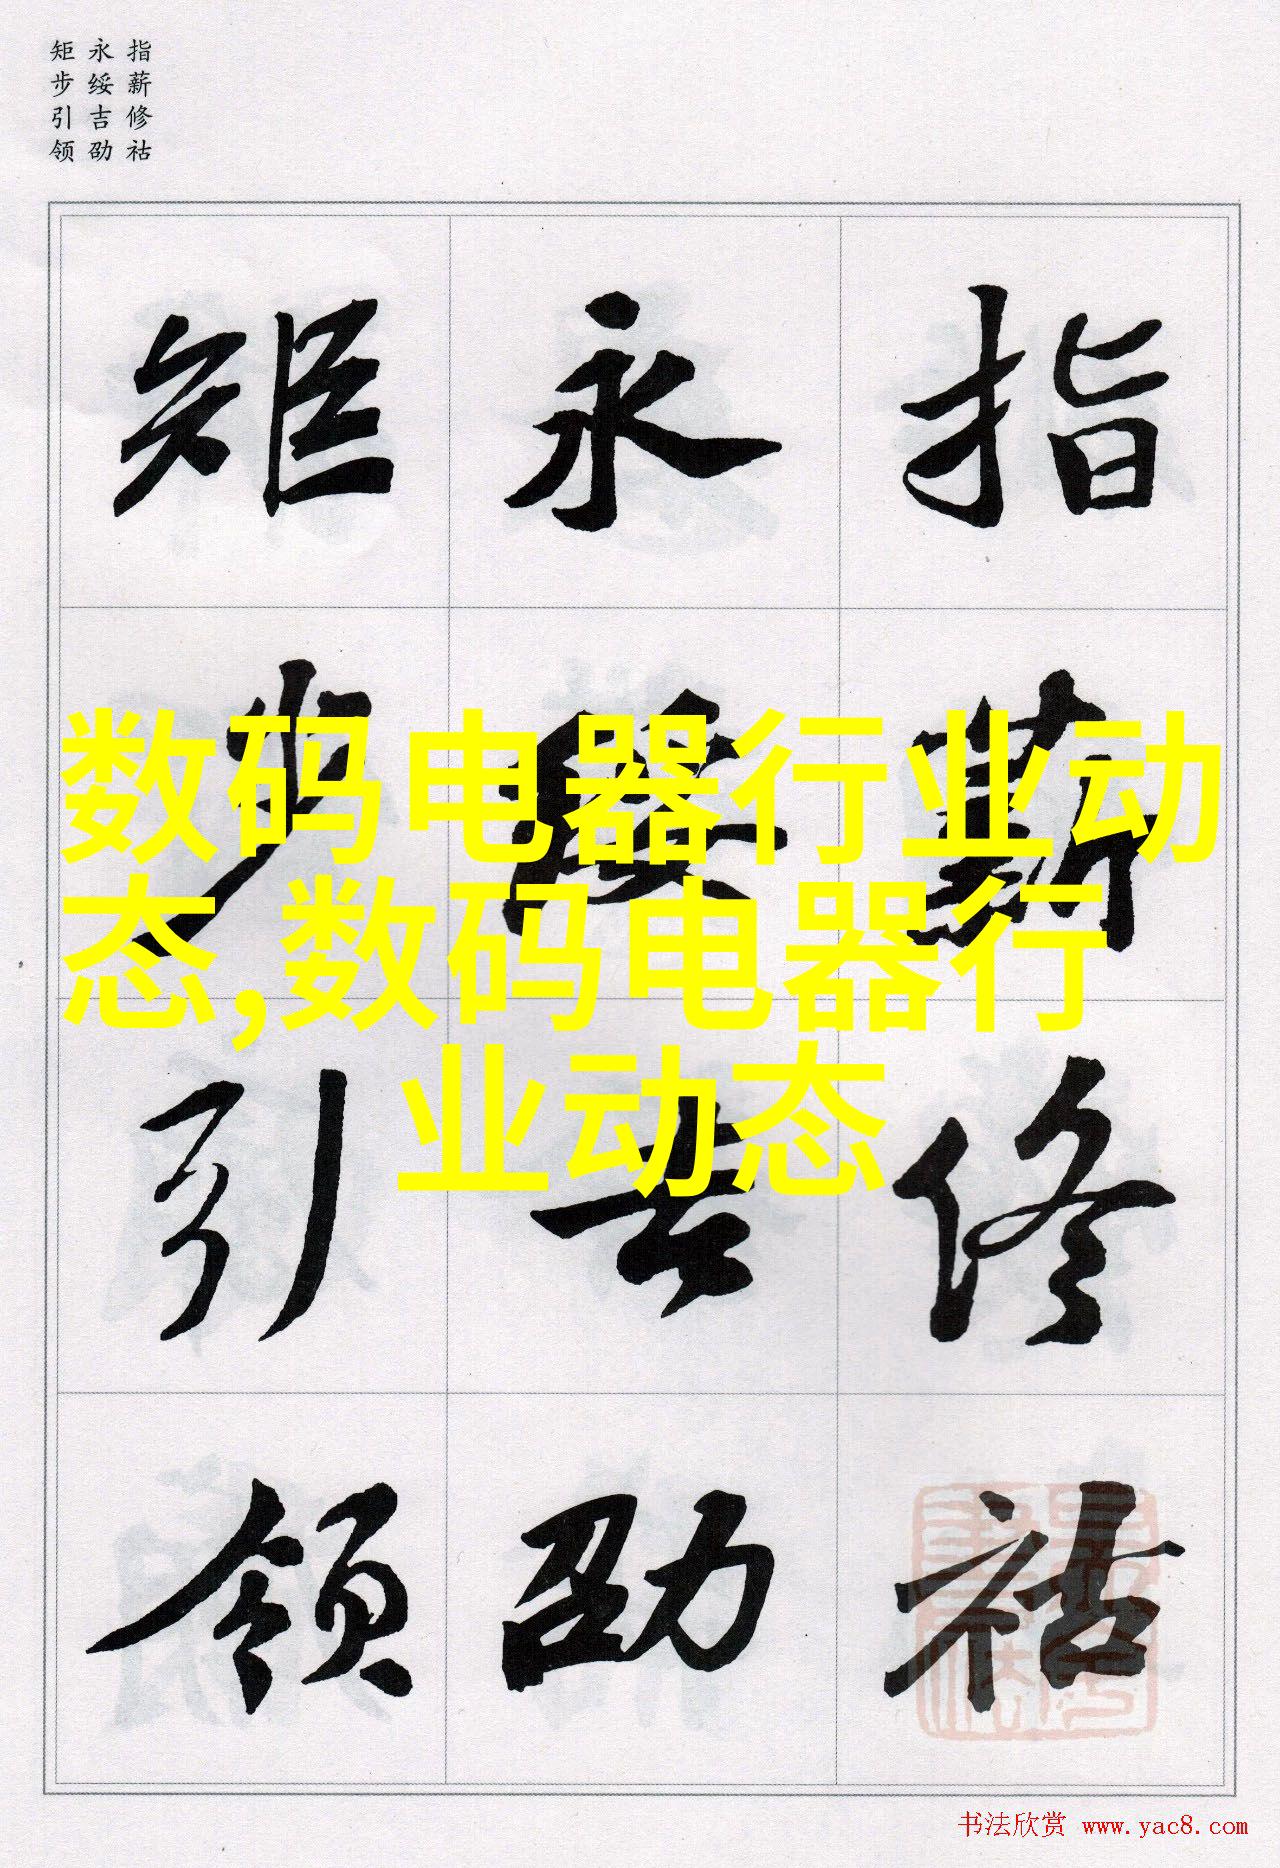 指薪修祜
永绥吉劭
矩步引领
指薪修祜
永绥吉劭
矩步引领
数码电器行业动
态,数码电器行
业动态
书法欣赏 www.yac8.com